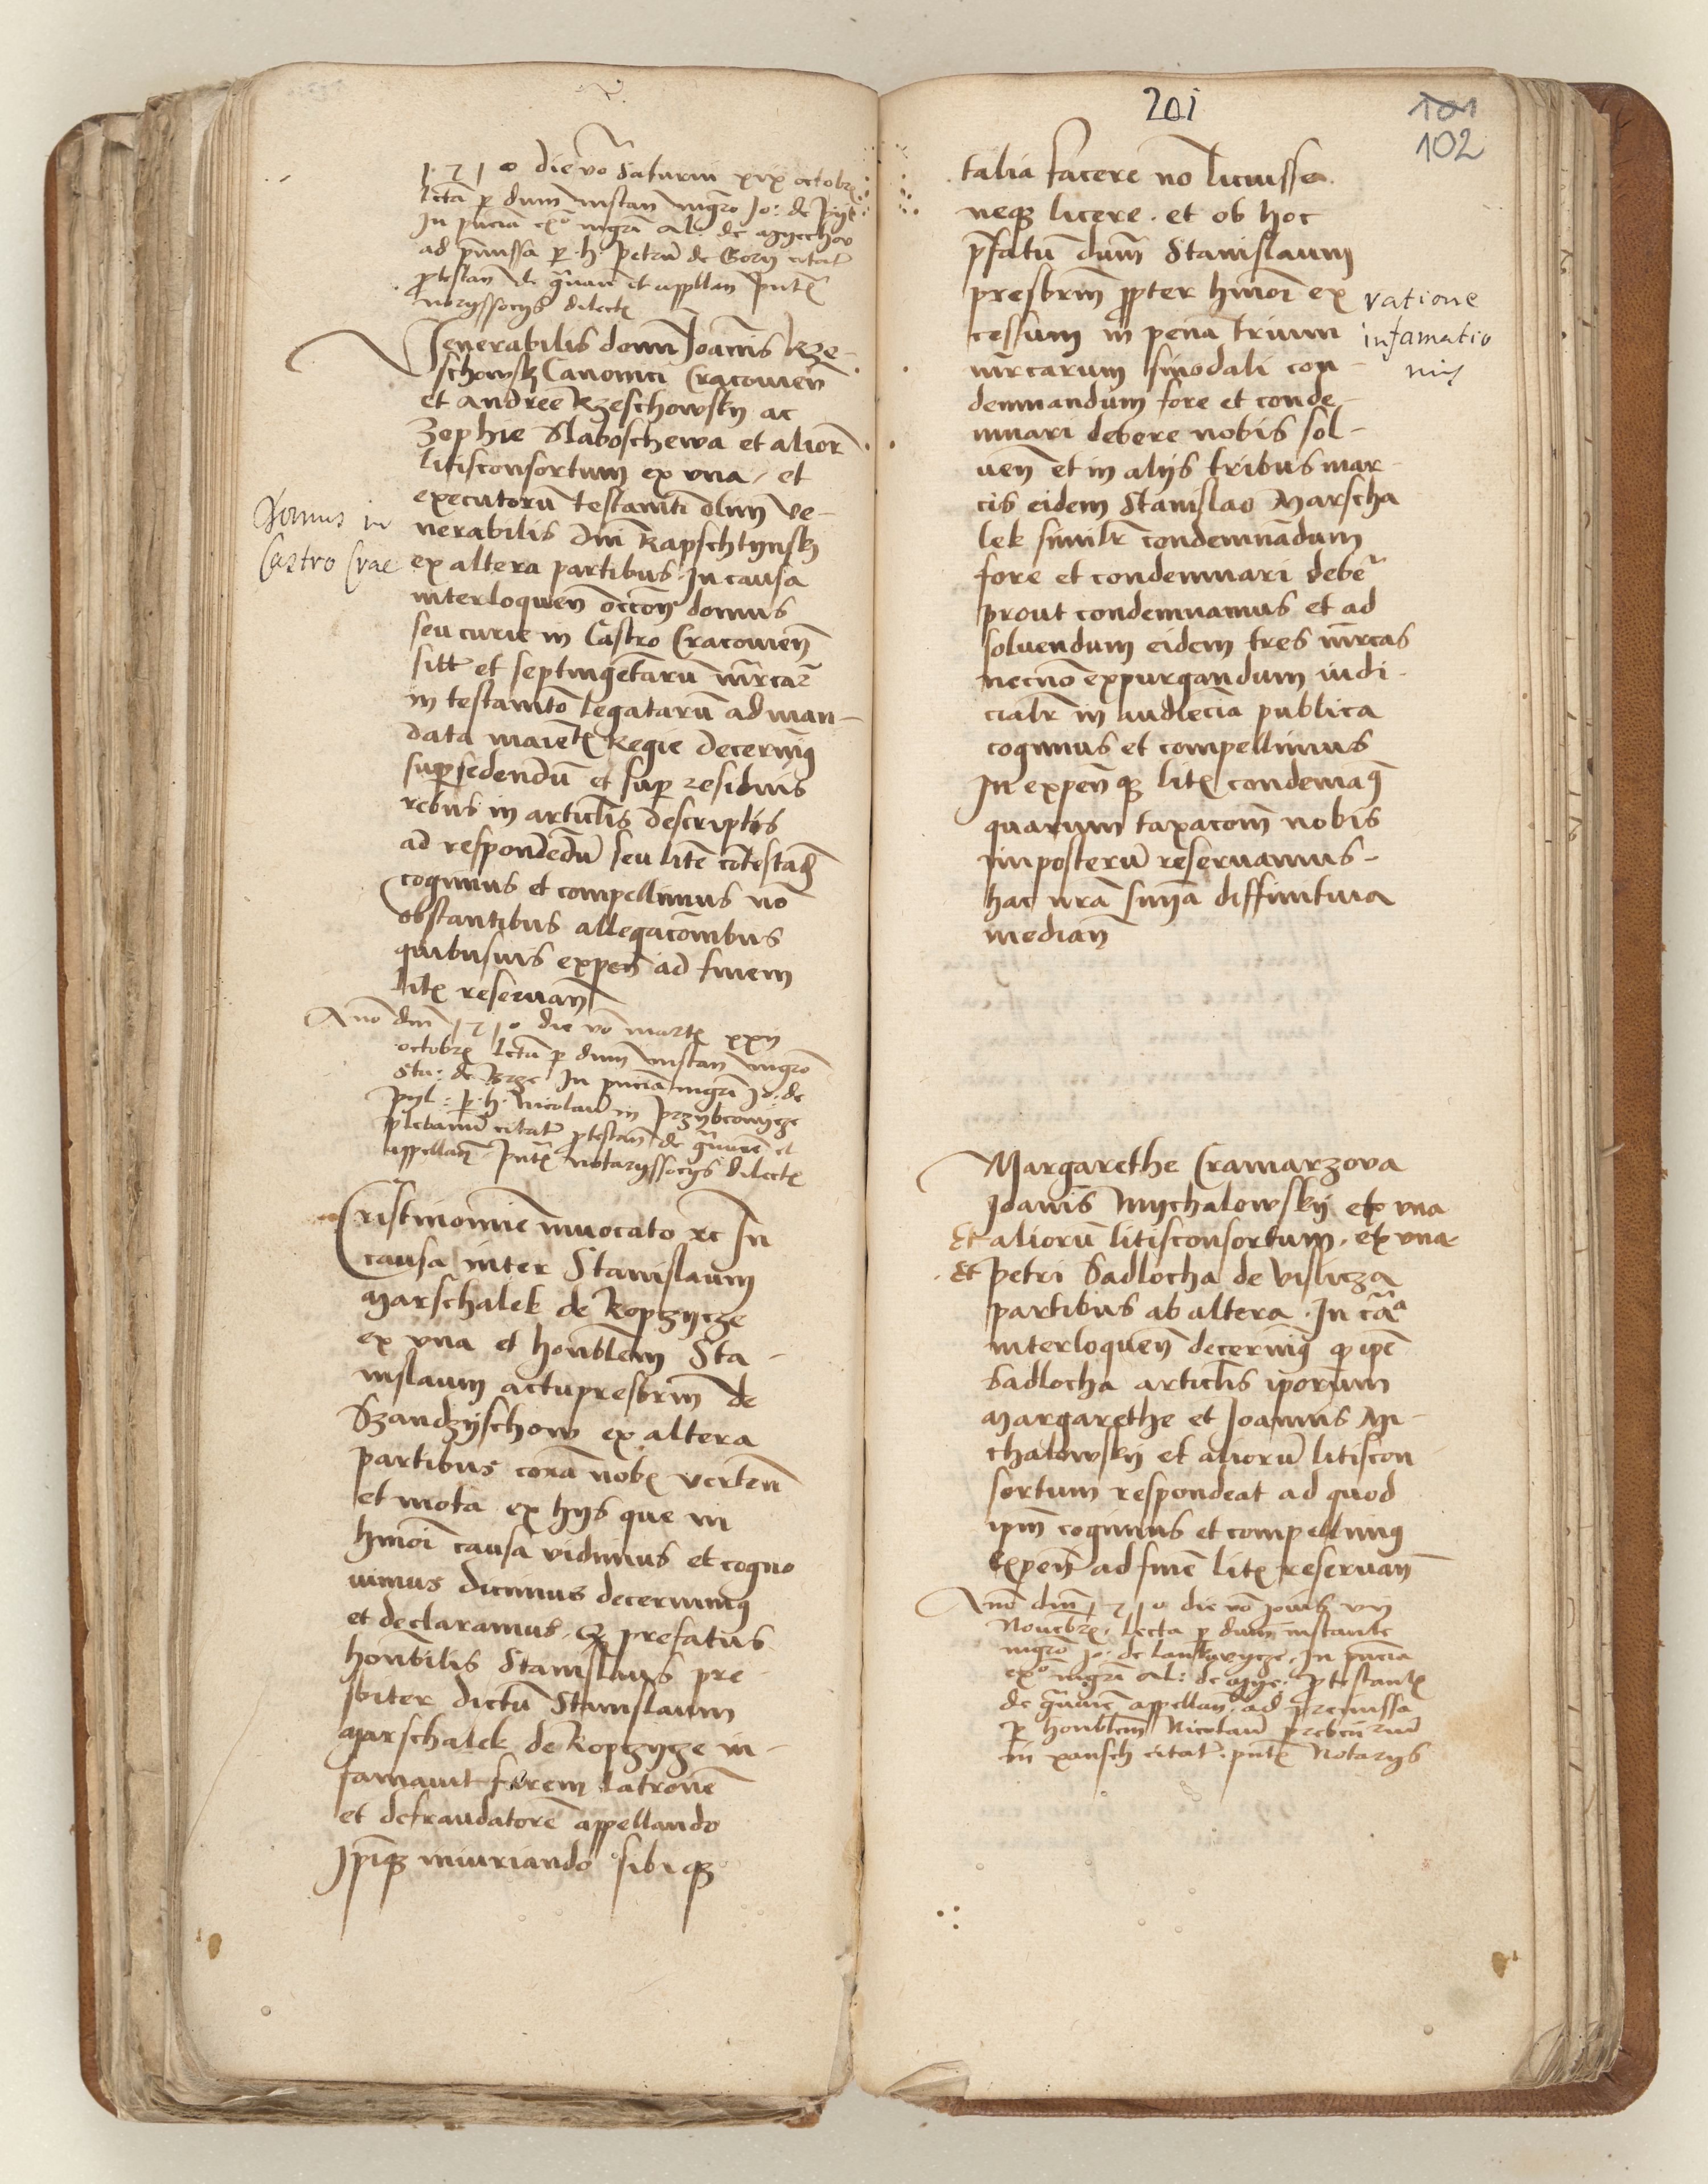 1510 die vo Saturni xix octobr
lcta p dum instan mgro Jo: de Pyl:
In pncia exo mgri al: de myechov
ad pmissa p h petru de Gory citat
ptestan de gruam et appllan pntx
notarys socys dilectx
Venerabilis domi Joanis Rze-
schowsky Canonici Cracovien
et Andree Rzeschowsky ac
Zophie Slaboschewa et alior
litisconsortum ex vna / et
executoru testamti olim ve-
nerabilis dni Kapschtynsky
ex altera partibus. In causa
interloquen occon domus
seu curie in Castro Cracovien
sitt et septingetaru mrcar
in testamto legataru ad man-
data maiestx Regie decernimg
supersedendu et sup residuis
rebus in articlis descriptis
ad respondedu seu lite cotestad
cogimus et compellimus no
obstantibus allegacombus
quibusuis expen ad finem
litx reservan
Domus in
Castro Crac
Ano dni 1510 die vo martx xxii
octobrx lcta p dum instan mgro
Sta: de Brze In pncia mgri Jo: de
Pyl: p h Nicolau in Przybcowycze
plebanu citat ptestan de gruame et
appellan pntx notarys socys dilectx
Cristi nomie invocato rc In
causa inter Stanislaum
Marschalek de Kopzycze
ex vna et honblem Sta-
nislaum actupresbrm de
Szandzyschow ex altera
partibus cora nobx verten
et mota ex hys que in
hmoi causa vidimus et cogno
uimus dicimus decernimg
et declaramus. q prefatus
honbilis Stanislaus pre
sbiter dictu Stanislaum
Marschalek de Kopzycze in-
famauit furem latrone
et defraudatore appellando
Ipiq iniuriando sibi q
201
101
102
talia facere no licuisse
neq licere. et ob hoc
pfatu dum Stanislaum
presbrm ppter hmoi ex
cessum in pena trium
mrcarum sinodali con-
demnandum fore et conde-
mnari debere nobis sol-
uen et in alijs tribus mar
cis eidem Stanislao Marscha
lek similr condemnadum
fore et condemnari debe
prout condemnamus et ad
soluendum eidem tres mrcas
necno expurgandum iudi-
cialr in audiecia publica
cogimus et compellimus
In expen q litx condemag
quarum taxacom nobis
imposteru reseruamus-
hac nra snia diffinitiua
median
ratione
infamatio
nis
Margarethe Cramarzova
Joanis Mychalowsky et vna
Et alioru litisconsortum. ex vna
Et Petri Sadlocha de Vislicza
partibus ab altera. In caa
interloquen decernimg q ipe
Sadlocha articlis iporum
Margarethe et Joannis Mi-
chalowsky et alioru litiscon
sortum respondeat ad quod
ipm cogimus et compellimg
Expen ad fine litx reseruan
Ano dni 1510 die vo Jovis vii
Nouebrx. Lecta p dum instante
mgro Jo: de Lankavycze. In pncia
exo mgri al: de mye. ptestantx
de gruame appellan. ad premissa
p honblem Nicolau prebendriu
in xansch citat. pntx Notarys